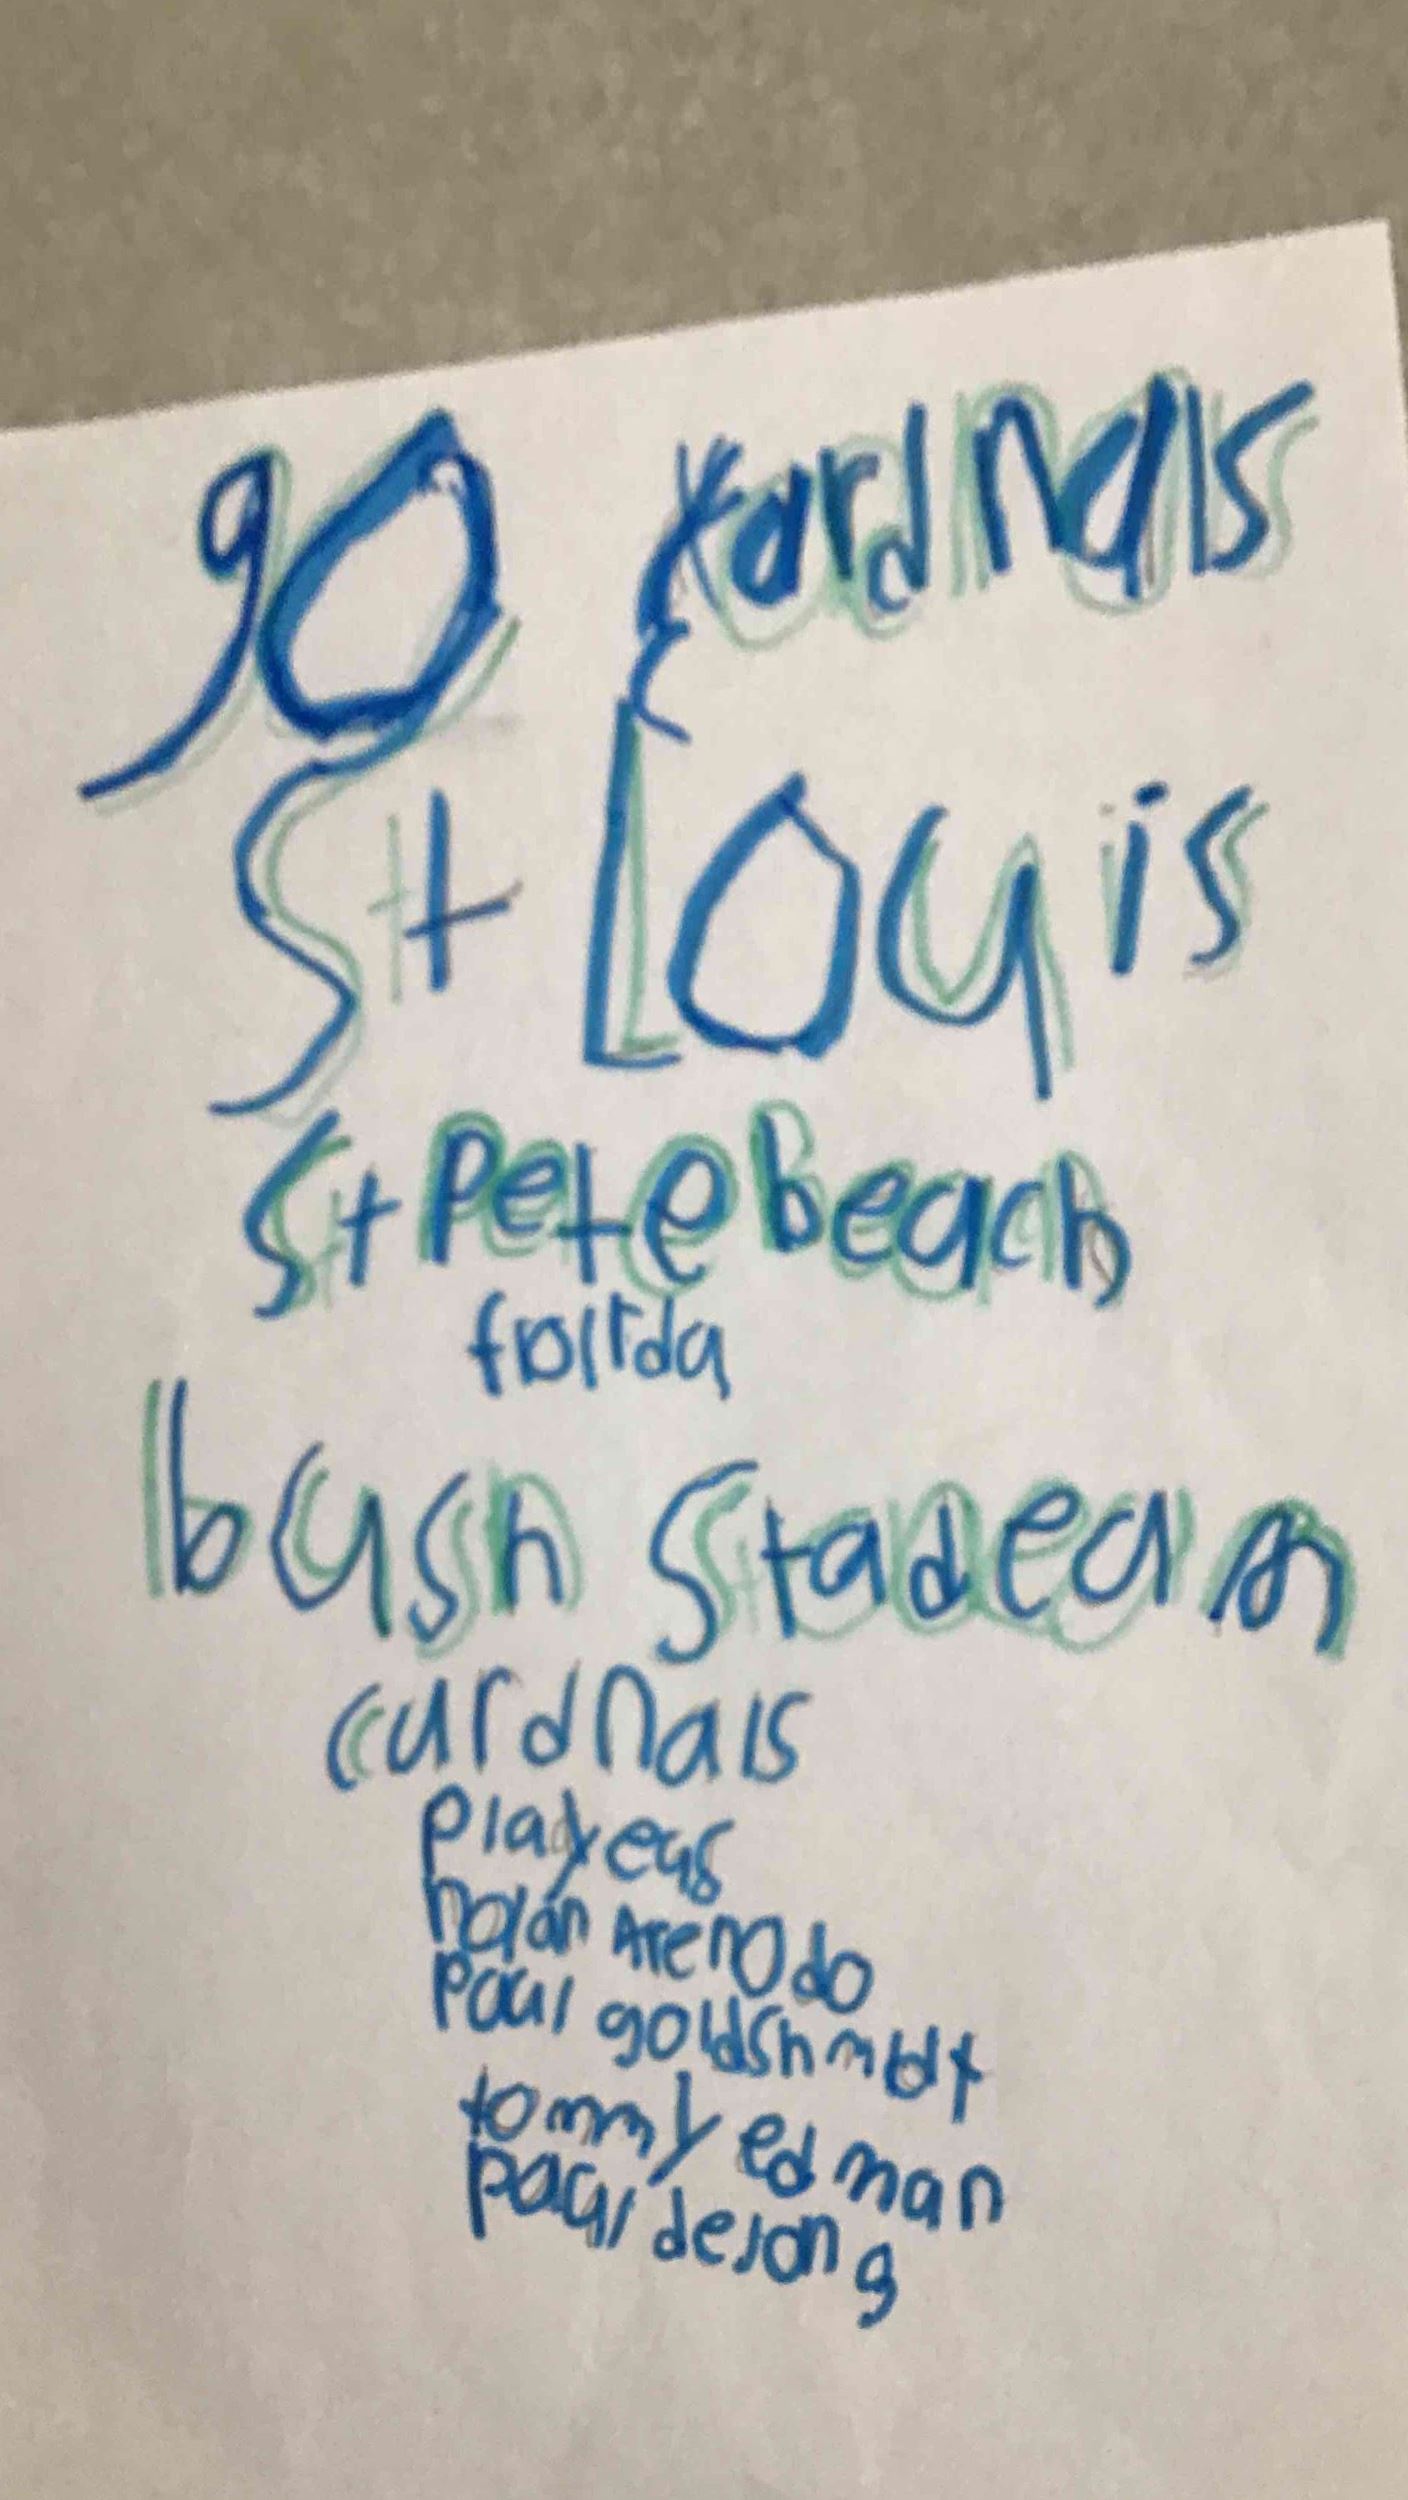 go cardnals
St Louis
St Pete beach
flolrda
bush stadeum
curdnals
playeus
nolan Arenodo
Paul goldshmbt
tommy edman
paul dejong